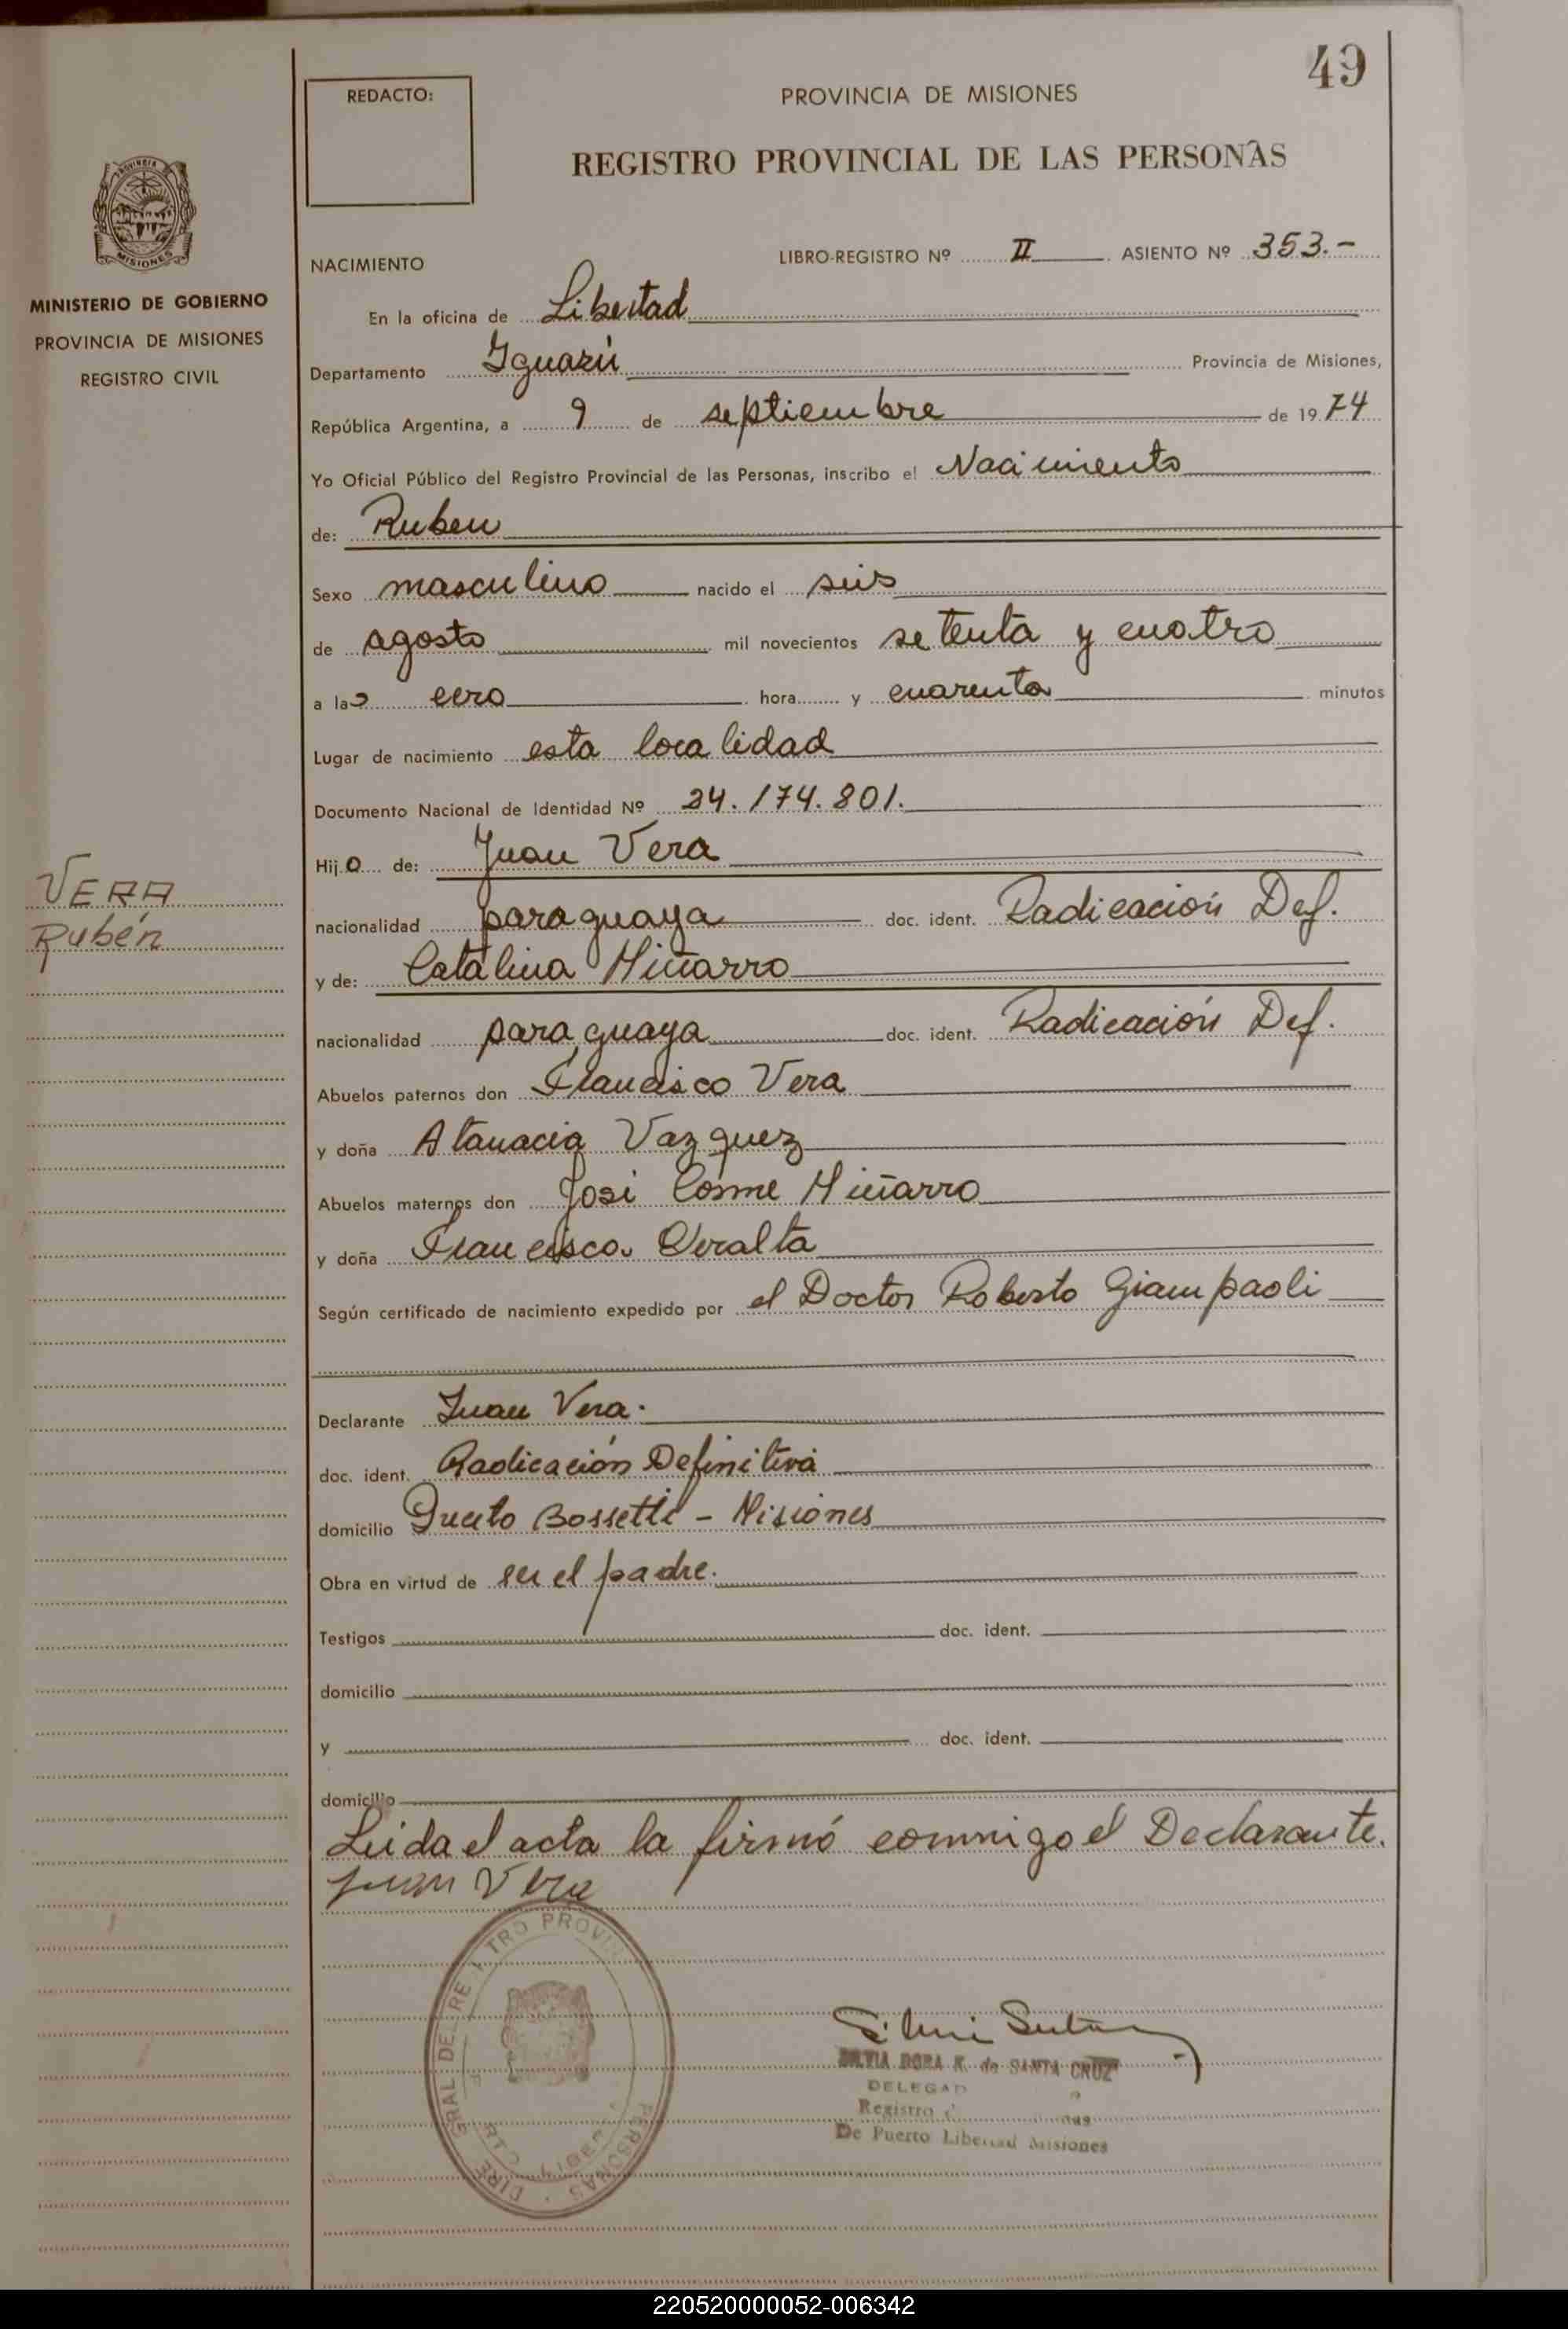 49
REDACTO:
PROVINCIA DE MISIONES
REGISTRO PROVINCIAL DE LAS PERSONAS
PROVINCIA
MISIONES
MINISTERIO DE GOBIERNO
PROVINCIA DE MISIONES
REGISTRO CIVIL
NACIMIENTO LIBRO-REGISTRO Nº II ASIENTO Nº 353.-
En la oficina de Libertad
Departamento Iguazú Provincia de Misiones,
República Argentina, a 9 de septiembre de 1974
Yo Oficial Público del Registro Provincial de las Personas, inscribo el Nacimiento
de: Ruben
Sexo masculino nacido el seis
de agosto mil novecientos setenta y cuatro
a las cero hora y cuarenta minutos
Lugar de nacimiento esta localidad
Documento Nacional de Identidad Nº 24.174.801.
Hijo de: Juan Vera
VERA
Rubén
nacionalidad paraguaya doc. ident. Radicación Def.
y de: Catalina Miñarro
nacionalidad paraguaya doc. ident. Radicación Def.
Abuelos paternos don Francisco Vera
y doña Atanacia Vazquez
Abuelos maternos don José Cosme Miñarro
y doña Francisca Peralta
Según certificado de nacimiento expedido por el Doctor Roberto Giampaoli
Declarante Juan Vera.
doc. ident. Radicación Definitiva
domicilio Puerto Bossetti - Misiones
Obra en virtud de ser el padre.
Testigos doc. ident.
domicilio
y doc. ident.
domicilio
Leida el acta la firmó conmigo el Declarante.
Juan Vera
SILVIA DORA K. de SANTA CRUZ
Registro
De Puerto Libertad Misiones
220520000052-006342